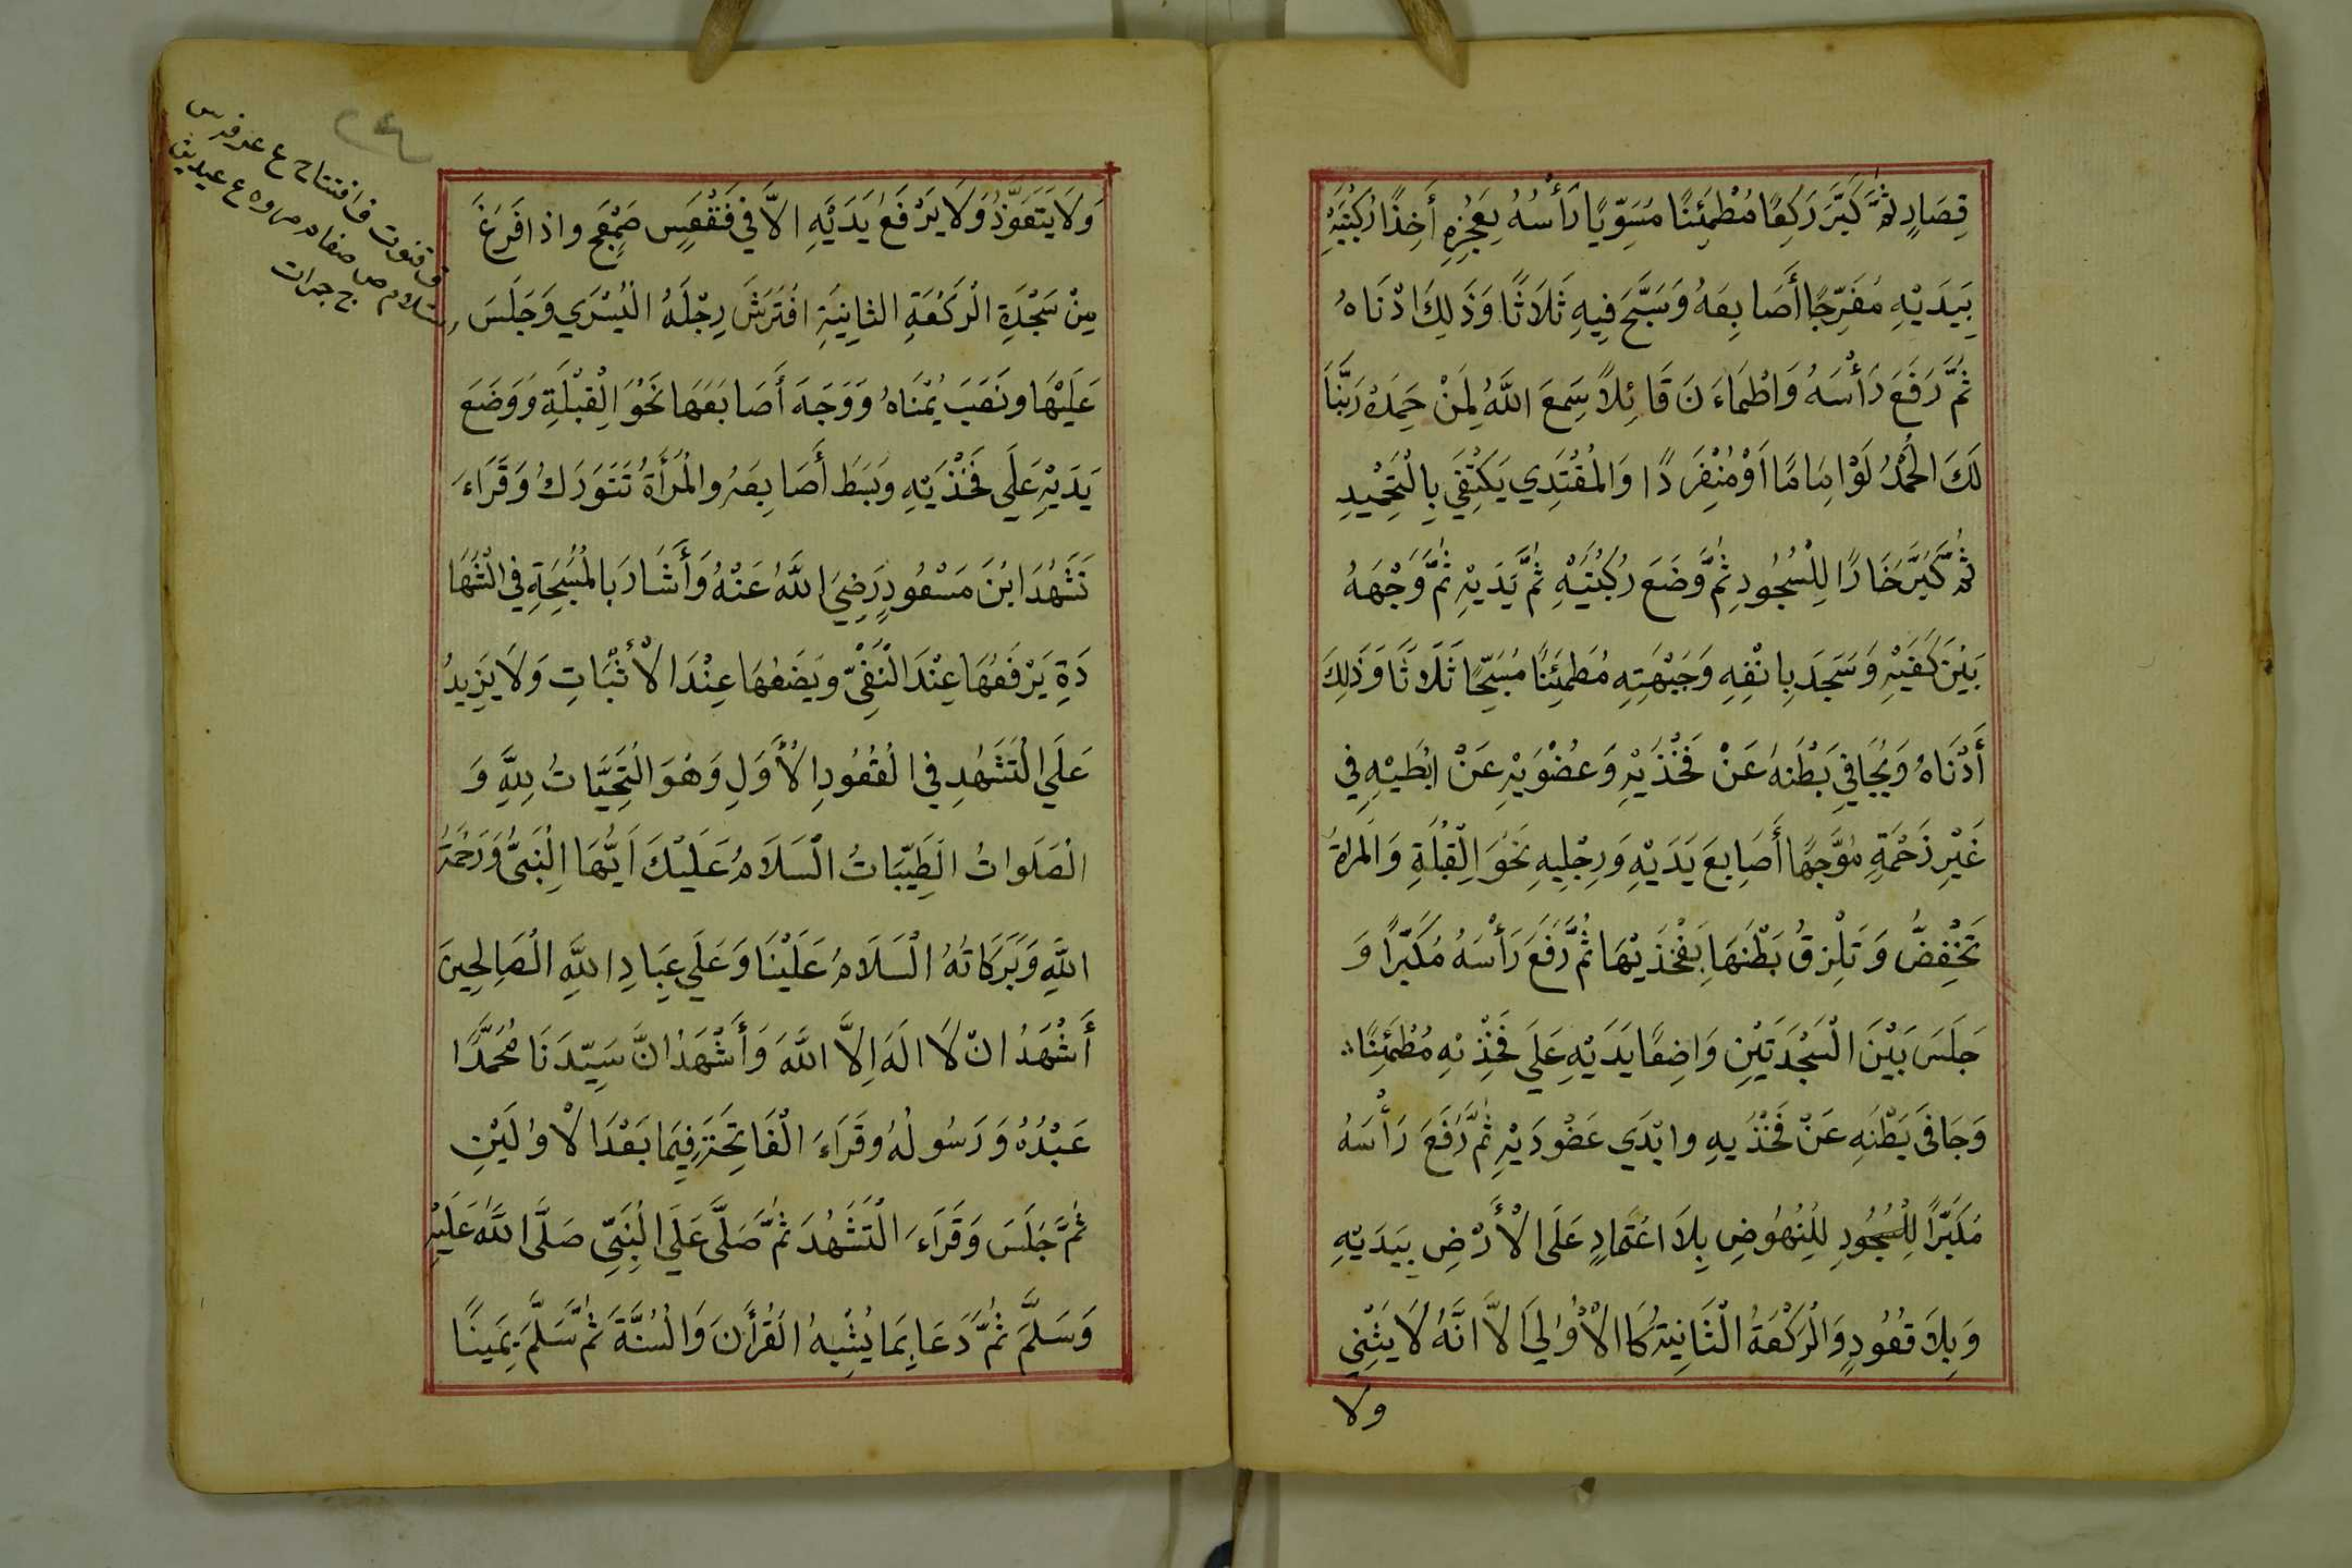 قِصَارٍ ثُمَّ كَبَّرَ رَكِعًا مُطْمَئِنًا مُسَوِّيًا رَأْسُهُ بِعَجُزِهِ أَخِذًا رُكْبَتَيْهِ
بِيَدَيْهِ مُفَرِّجًا أَصَابِعَهُ وَسَبَّحَ فِيهِ ثَلَاثًا وَذَلِكَ ادْنَاهُ
ثُمَّ رَفَعَ رَأْسَهُ وَاطْمَاءَنَ قَائِلاً سَمِعَ اللَّهُ لِمَنْ حَمِدَهُ رَبَّنَا
لَكَ الحَمْدُ لَوْ اِمَامًا اَوْ مُنْفَرِدًا وَالمُقْتَدِي يَكْتَفِي بِالْتَحْمِيْدِ
ثُمَّ كَبَّرَ خَارًا لِلْسُجُودِ ثُمَّ وَضَعَ رُكْبَتَيْهِ ثُمَّ يَدَيْهِ ثُمَّ وَجْهَهُ
بَيْنَ كَفَيْهِ وَسَجَدَ بِانْفِهِ وَجَبْهَتِهِ مُطْمَئِنًا مُسَبِّحًا ثَلَاثًا وَذَلِكَ
أَدْنَاهُ وَيُجَافِي بَطْنَهُ عَنْ فَخْذَيْهِ وَعُضْوَيْهِ عَنْ ابْطَيْهِ فِي
غَيْرِ زَحْمَةٍ مُوَّجِهًا أَصَابِعَ يَدَيْهِ وَرِجْلِيهِ نَحْوَ الْقِبْلَةِ وَالمراةُ
تَخْفِضُ وَتَلْزِقُ بَطْنَهَا بِفَخْذَيْهَا ثُمَّ رَفَعَ رَأْسَهُ مُكَبِّرًا وَ
جَلَسَ بَيْنَ الْسَجْدَتَيْنِ وَاضِعًا يَدَيْهِ عَلَي فَخِذْيْهِ مُطْمَئِنًا
وَجَافَى بَطْنَهِ عَنْ فَخْذَيهِ وابْدَي عَضُودَيْهِ ثُمَّ رَفَعَ رَأْسَهُ
مُكَبِّرًا لِلْسُجُودِ لِلنِهُوضِ بِلَا اعْتَمادٍ عَلَى الْأَرْضِ بِيَدَيْهِ
وَبِلَا قُعُودٍ وَالْرَكْعَةُ الْثَانِيَةُ كَا الْأُوْلَي الاَّ انَّهُ لَا يَثْنِي
ولا
وَلَا يَتَعَوَّذُ وَلَا يَرْفَعُ يَدَيْهِ الاَّ فِي فَقْعَسٍ صَمْعَجٍ واذا فَرَغَ
مِنْ سَجْدَةِ الْرَكْعَةِ الثانِيَةِ افْتَرَشَ رِجْلَهُ الْيُسْرَي وَجَلَسَ
عَلَيْهَا ونَصَبَ يُمْنَاهُ وَوَجَهَ أَصَابَعَهَا نَحْوَ الْقِبْلَةِ وَوَضَعَ
يَدَيْهِ عَلَي فَخْذَيْهِ وبَسَطَ أَصَابِعَهُ والْمَرْأَةُ تَتَوَرَكُ وَقَرَاءَ
تَشَهُدَ ابْنَ مَسْعُودٍ رَضِيَ اللَّهُ عَنْهُ وَأَشَارَ بالْمُسَبِحَةِ فِي الْشَهَا
دَةِ يَرْفَعُهَا عِنْدَ الْنَفْيّ ويَضَعُهَا عِنْدَ الْأثْبَاتِ وَلَا يَزِيدُ
عَلَي الْتَشَهُدِ فِي الْقُعُودِ الْأَوَلِ وَهُوَ الْتَحِيَّاتُ لِلَّهِ وَ
الْصَلَواتُ الْطَيِّبَاتُ الْسَلَامُ عَلَيْكَ اَيُّهَا الْنَبِىُّ وَرَحْمَةُ
اللَّهِ وَبَرَكَاتُهُ الْسَلَامُ عَلَيْنَا وَعَلَي عِبَادِ اللَّهِ الْصَالِحِينَ
أَشْهَدُ انْ لَا الَهَ اِلاَّ اللَّهَ وَأَشْهَدُ انَّ سَيِّدَنَا مُحَمَّدًا
عَبْدُهُ وَرَسُولُهُ وقَرَاءَ الْفَاتِحَةَ فِيمَا بَعْدَ الْاوُلَيْنِ
ثُمَّ جَلَسَ وَقَرَاءَ الْتَشَهُدَ ثُمَّ صَلَّى عَلَي الْنَبِيِّ صَلَّى اللَّهُ عَلَيْهِ
وَسَلَّمَ ثُمَّ دَعَا بِمَا يُشْبِهُ الْقُرْأَنَ وَالْسُنَّةَ ثُمَّ سَلَّمَ يَمِينًا
ف افتتاح ع
ق قنوت